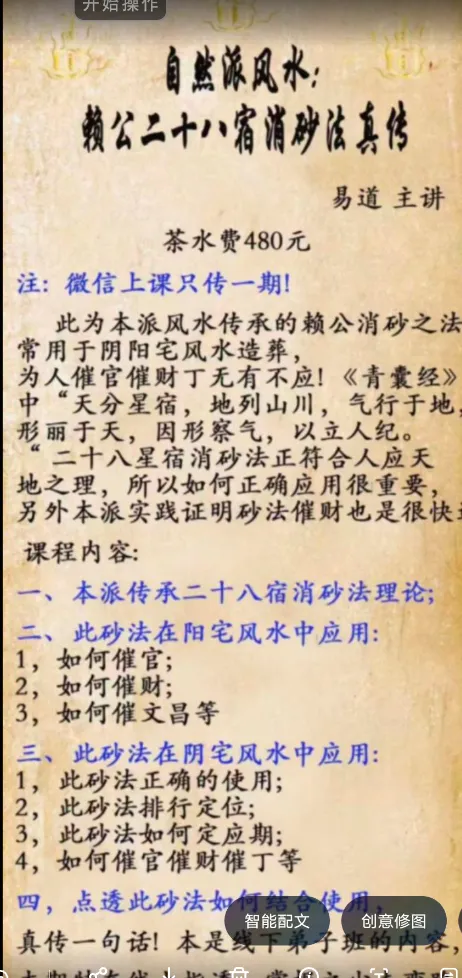 开始操作
自然派风水:
赖公二十八宿消砂法真传
易道 主讲
茶水费480元
注: 微信上课只传一期!
此为本派风水传承的赖公消砂之法
常用于阴阳宅风水造葬,
为人催官催财丁无有不应! 《青囊经》
中“天分星宿, 地列山川, 气行于地,
形丽于天, 因形察气, 以立人纪。
“ 二十八星宿消砂法正符合人应天
地之理, 所以如何正确应用很重要,
另外本派实践证明砂法催财也是很快
课程内容:
一、本派传承二十八宿消砂法理论;
二、此砂法在阳宅风水中应用:
1, 如何催官;
2, 如何催财;
3, 如何催文昌等
三、此砂法在阴宅风水中应用:
1, 此砂法正确的使用;
2, 此砂法排行定位;
3, 此砂法如何定应期;
4, 如何催官催财催丁等
四, 点透此砂法如何结合使用,
智能配文
创意修图
真传一句话! 本是线下弟子班的内容,